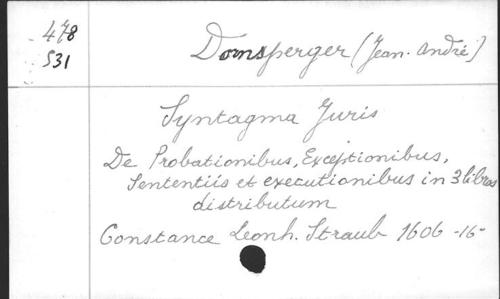 478
531
Domsperger (Jean-André)
Syntagma Juris
De Probationibus, Exceptionibus,
Sententiis et executionibus in 3 libros
distributum
Constance Leonh. Straub 1606 -16-